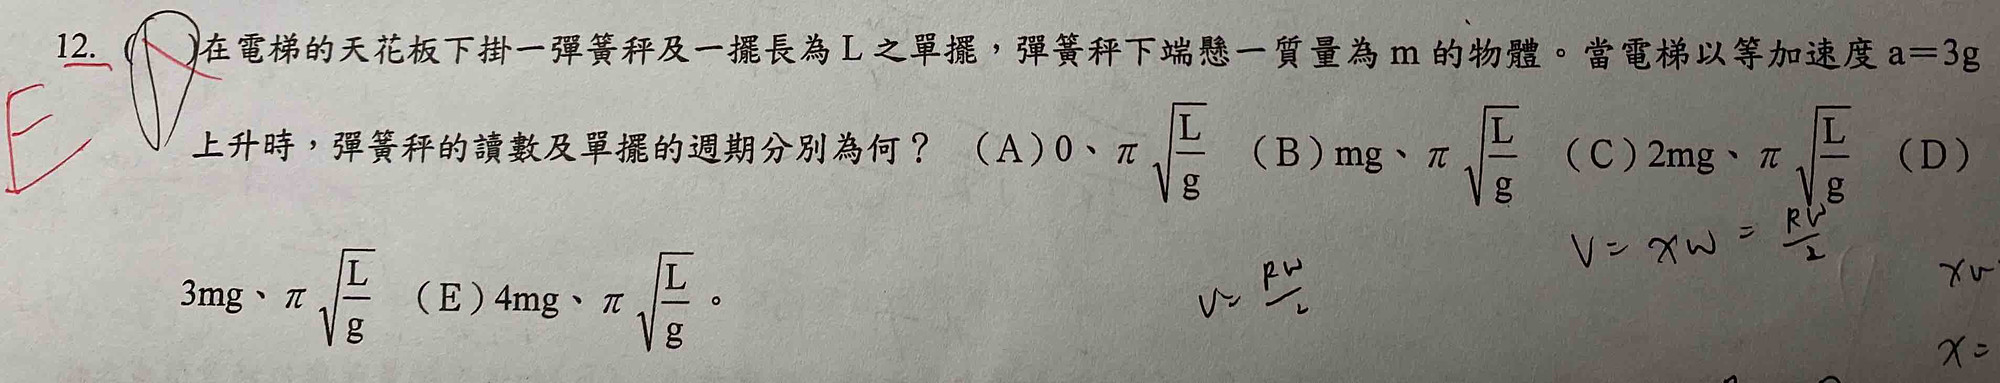 12. ( )在電梯的天花板下掛一彈簧秤及一擺長為 L 之單擺，彈簧秤下端懸一質量為 m 的物體。當電梯以等加速度 a＝3g
E
上升時，彈簧秤的讀數及單擺的週期分別為何？ （A）0、π√(L/g) （B）mg、π√(L/g) （C）2mg、π√(L/g) （D）
3mg、π√(L/g) （E）4mg、π√(L/g)。
V = xw = RW/2
v = RW/2
x =